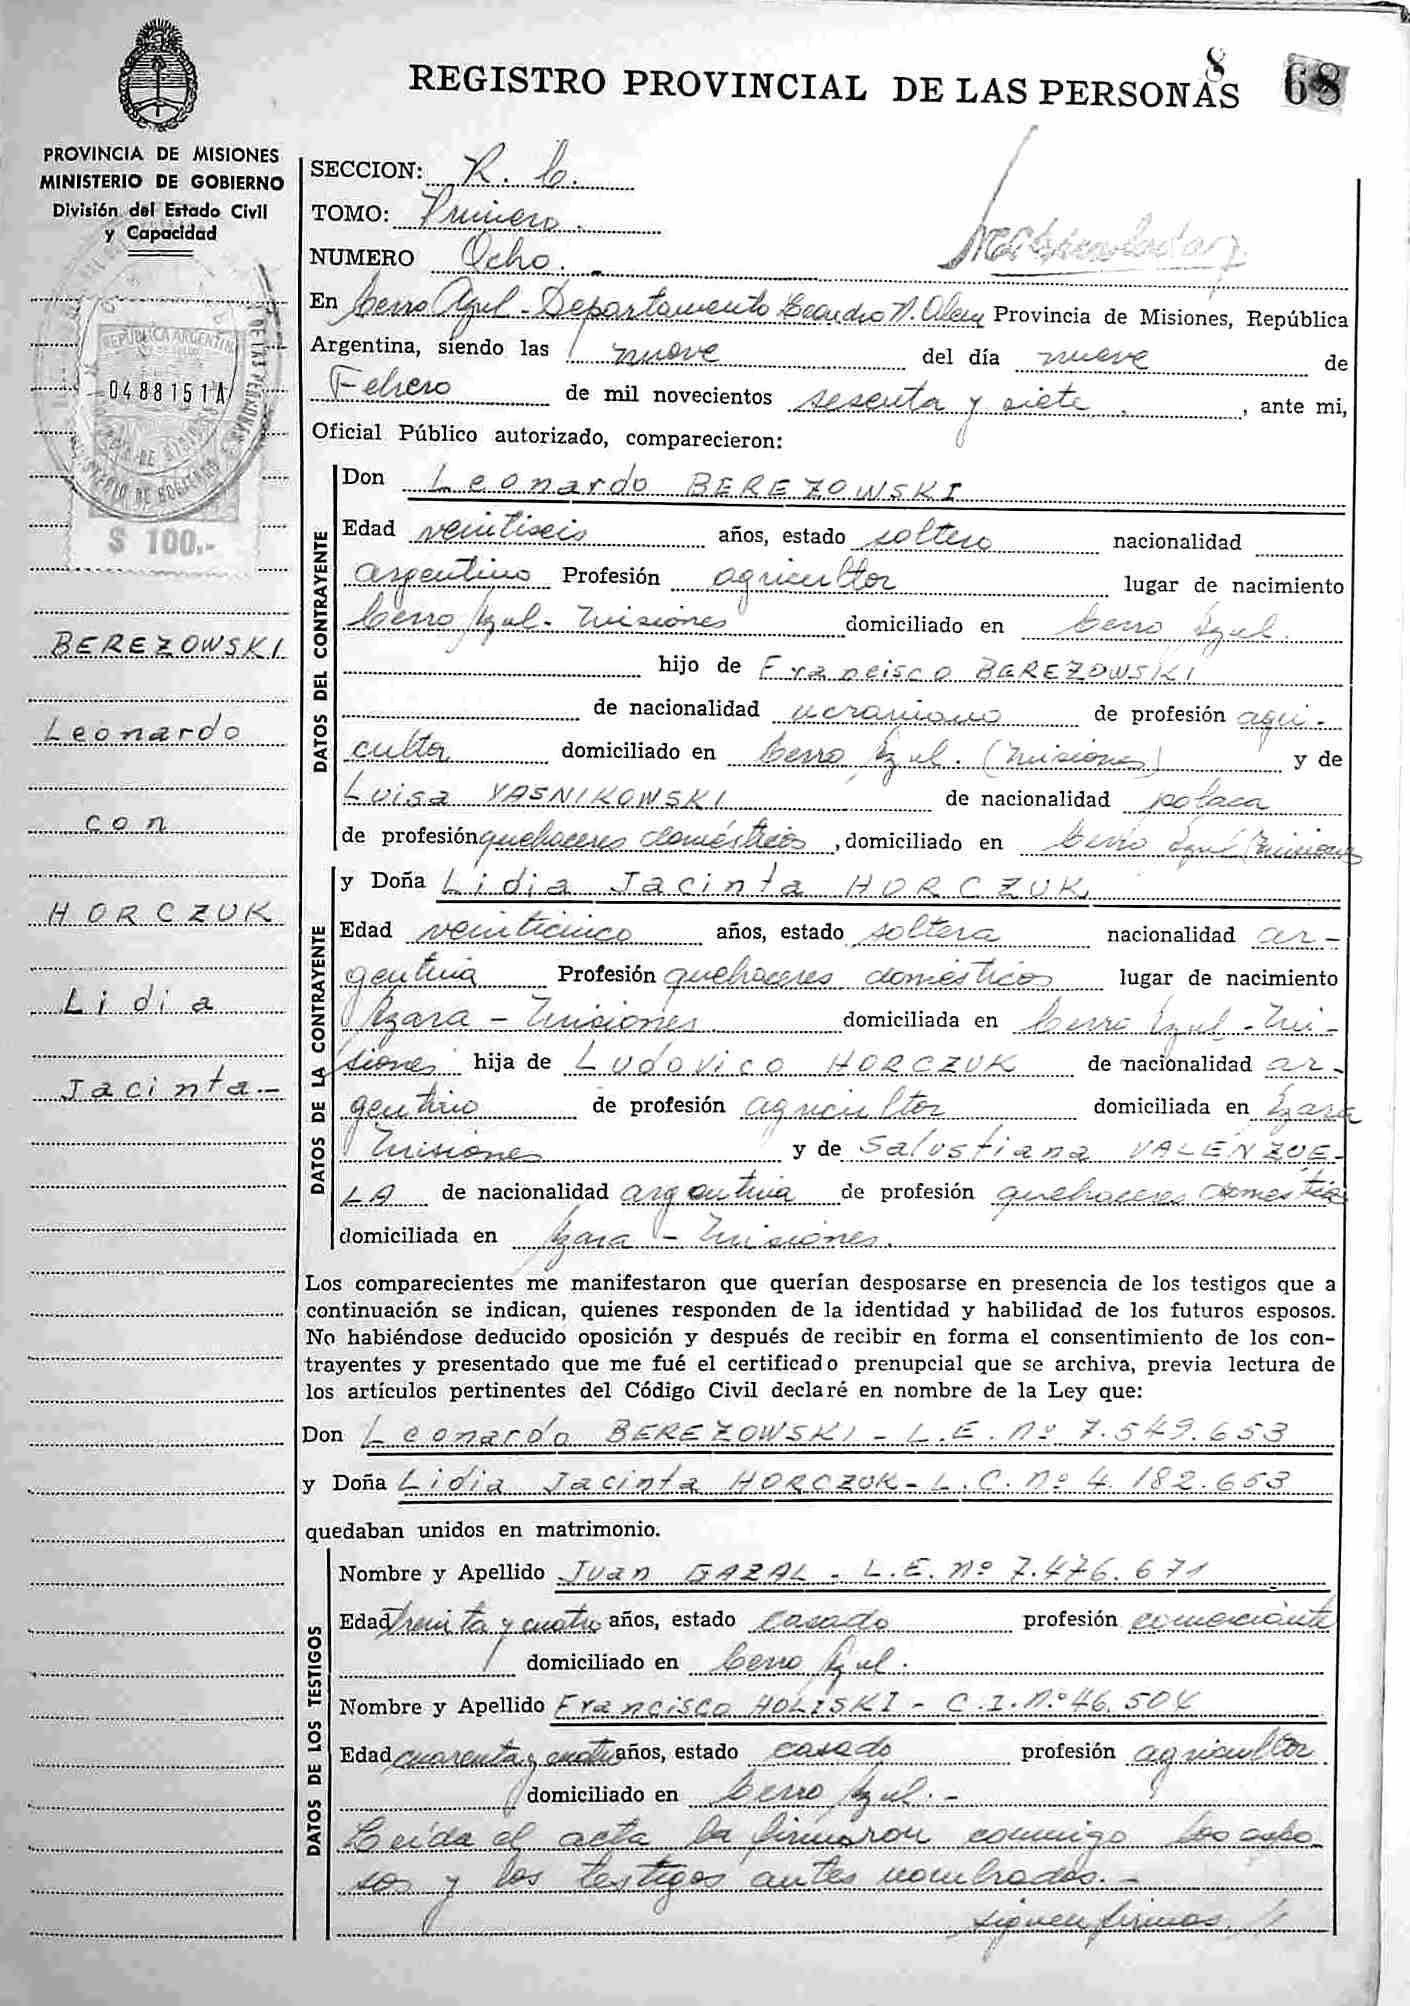 REGISTRO PROVINCIAL DE LAS PERSONAS 8 68
PROVINCIA DE MISIONES
MINISTERIO DE GOBIERNO
División del Estado Civil
y Capacidad
REPUBLICA ARGENTINA
0488151A
$ 100.-
BEREZOWSKI
Leonardo
con
HORCZUK
Lidia
Jacinta.-
SECCION: R. C.
TOMO: Primero.
NUMERO Ocho.
En Cerro Azul - Departamento Leandro N. Alem Provincia de Misiones, República
Argentina, siendo las nueve del día nueve de
Febrero de mil novecientos sesenta y siete, ante mi,
Oficial Público autorizado, comparecieron:
DATOS DEL CONTRAYENTE
Don Leonardo BEREZOWSKI
Edad veintiseis años, estado soltero nacionalidad
argentino Profesión agricultor lugar de nacimiento
Cerro Azul - Misiones domiciliado en Cerro Azul.
hijo de Francisco BEREZOWSKI
de nacionalidad ucraniano de profesión agri-
cultor domiciliado en Cerro Azul. (Misiones) y de
Luisa YASNIKOWSKI de nacionalidad polaca
de profesión quehaceres domésticos, domiciliado en Cerro Azul (Misiones
DATOS DE LA CONTRAYENTE
y Doña Lidia Jacinta HORCZUK
Edad veinticinco años, estado soltera nacionalidad ar-
gentina Profesión quehaceres domésticos lugar de nacimiento
Azara - Misiones domiciliada en Cerro Azul - Mi-
siones hija de Ludovico HORCZUK de nacionalidad ar-
gentino de profesión agricultor domiciliada en Azara
Misiones y de Salustiana VALENZUE-
LA de nacionalidad argentina de profesión quehaceres domésticos
domiciliada en Azara - Misiones.
Los comparecientes me manifestaron que querían desposarse en presencia de los testigos que a
continuación se indican, quienes responden de la identidad y habilidad de los futuros esposos.
No habiéndose deducido oposición y después de recibir en forma el consentimiento de los con-
trayentes y presentado que me fué el certificado prenupcial que se archiva, previa lectura de
los artículos pertinentes del Código Civil declaré en nombre de la Ley que:
Don Leonardo BEREZOWSKI - L.E. nº 7.549.653
y Doña Lidia Jacinta HORCZUK - L.C. nº 4.182.653
quedaban unidos en matrimonio.
DATOS DE LOS TESTIGOS
Nombre y Apellido Juan GAZAL - L.E. nº 7.476.671
Edad treinta y cuatro años, estado casado profesión comerciante
domiciliado en Cerro Azul.
Nombre y Apellido Francisco HOLISKI - C.I. nº 46.504
Edad cuarenta y cuatro años, estado casado profesión agricultor
domiciliado en Cerro Azul. -
Leída el acta la firmaron conmigo los espo-
sos y los testigos antes nombrados. -
siguen firmas //